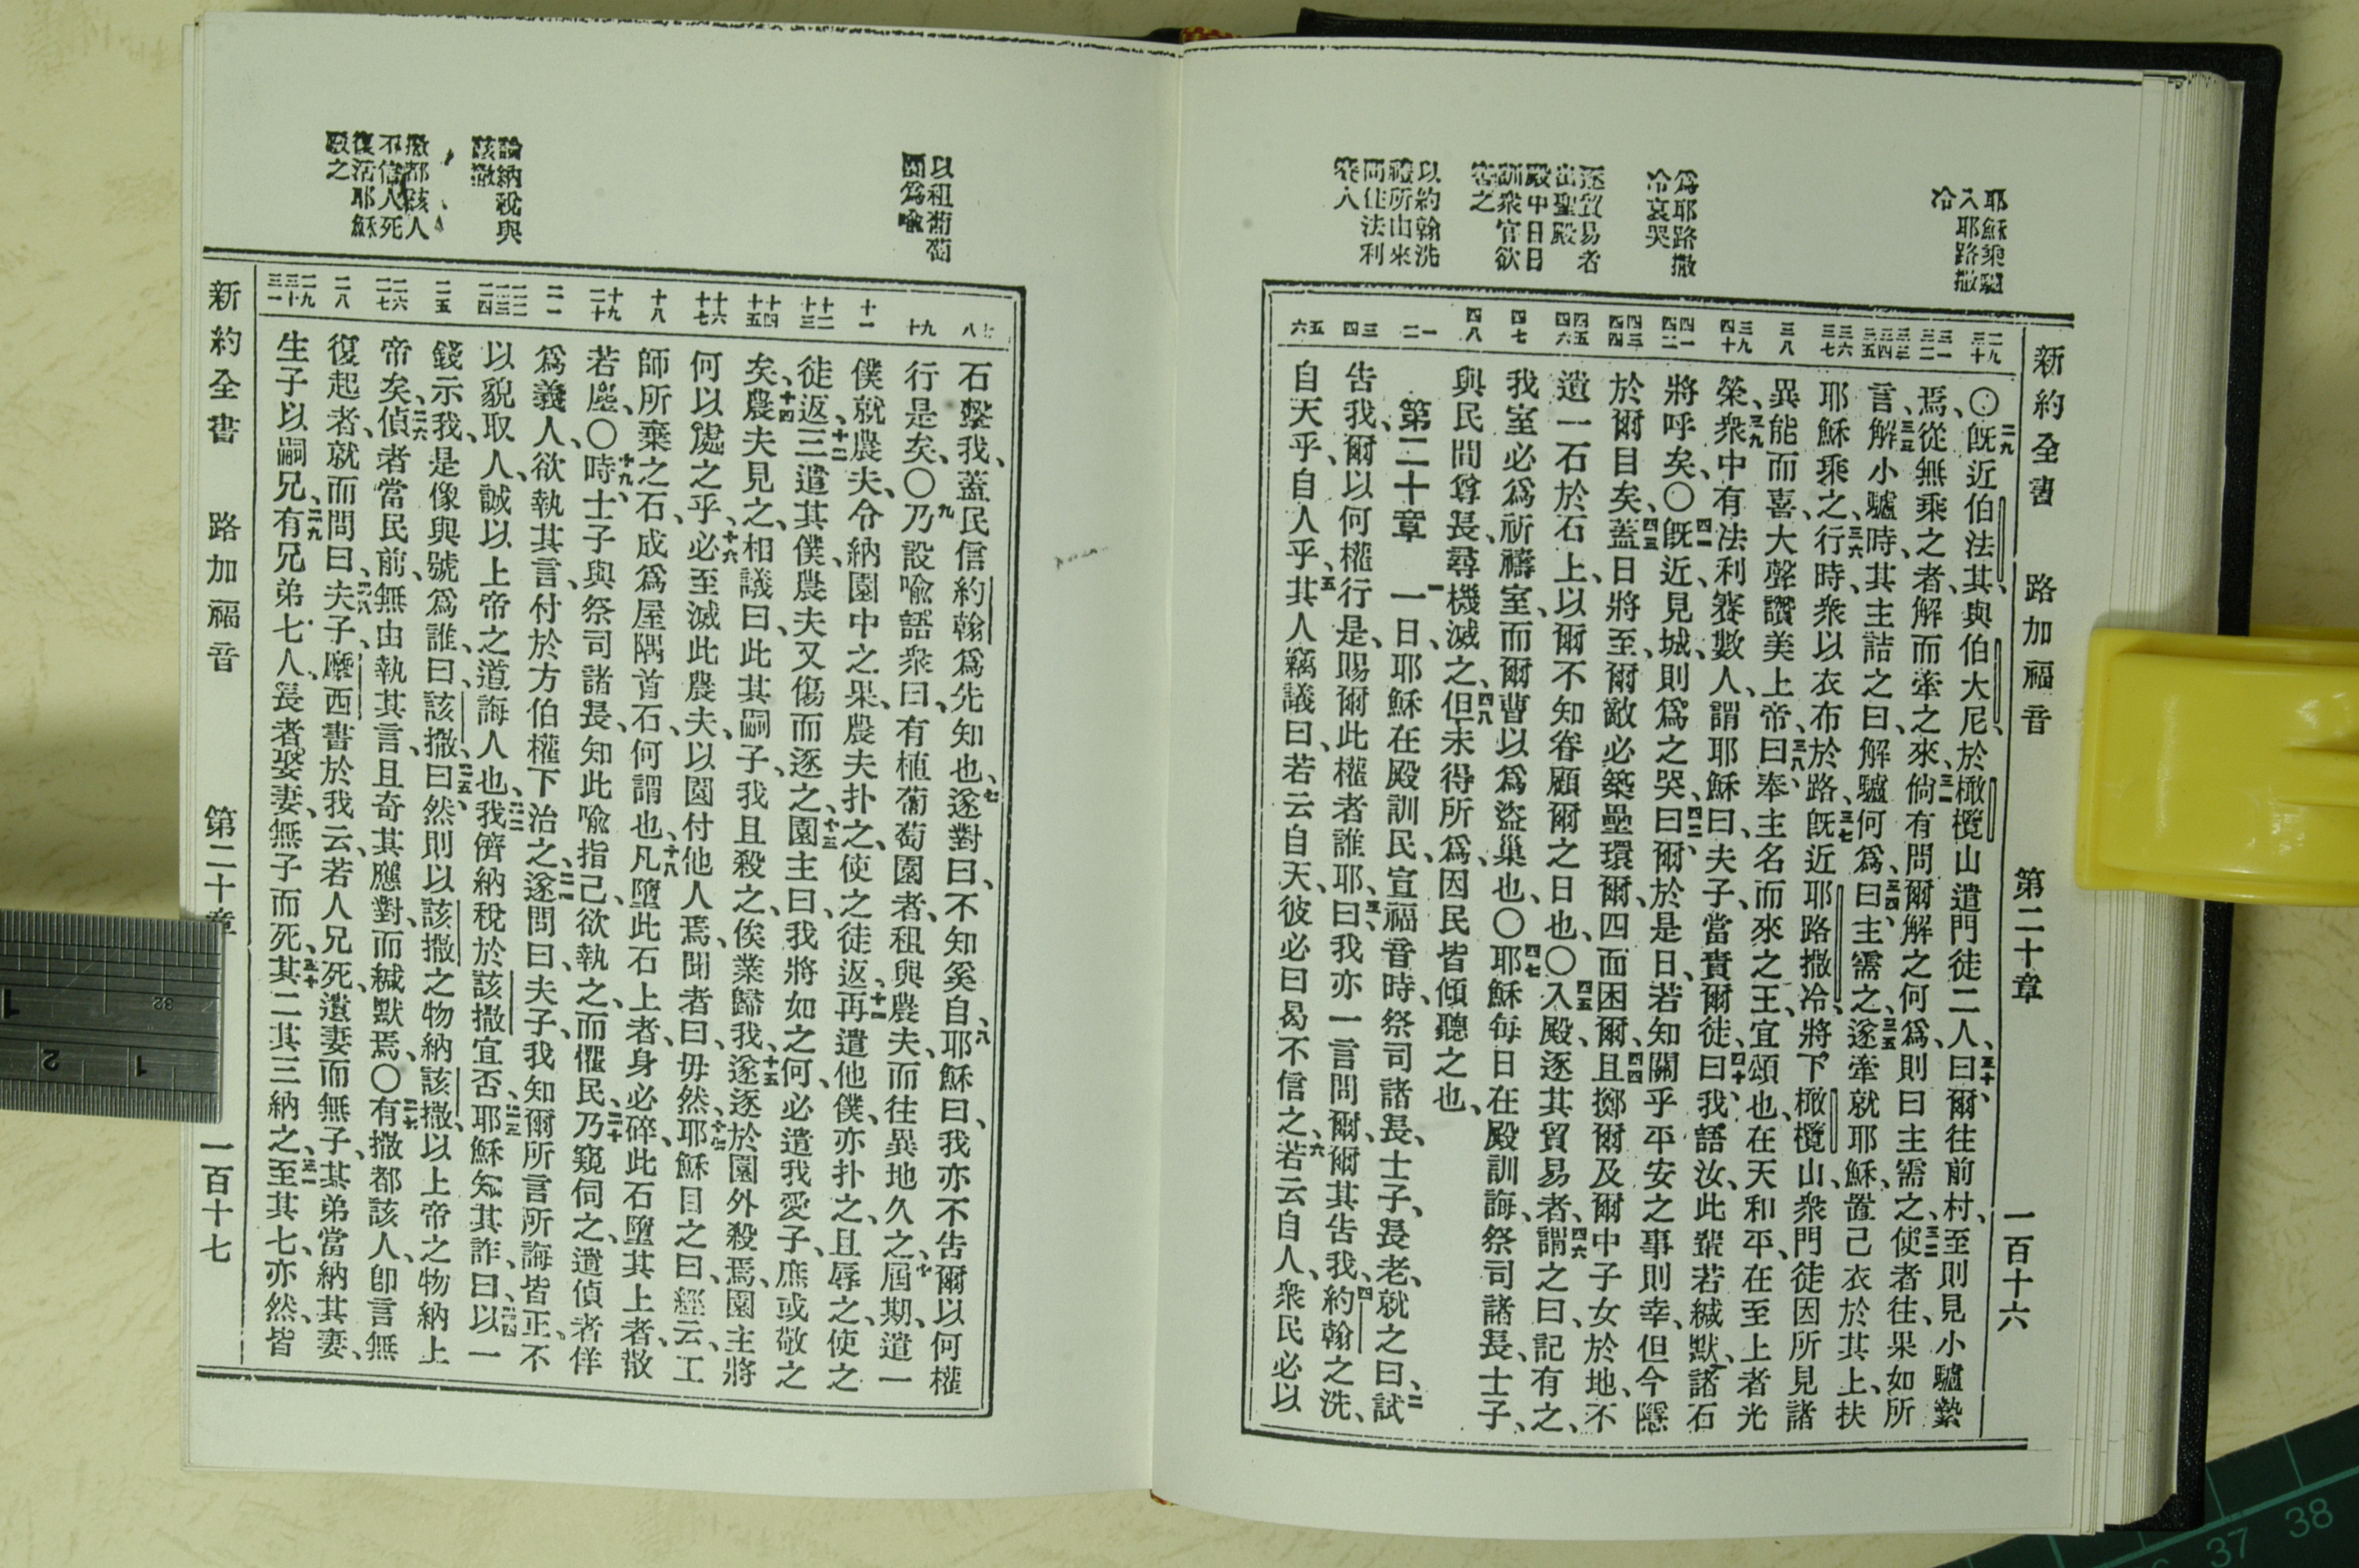 新約全書 路加福音 第二十章 一百十六
耶穌乘驢
入耶路撒
冷
爲耶路撒
冷哀哭
逐貿易者
出聖殿
殿中日日
訓衆官欲
害之
以約翰洗
禮所由來
問住法利
賽人
二九 三十 三一 三二 三三 三四 三五 三六 三七 三八 三九 四十 四一 四二 四三 四四 四五 四六 四七 四八 一 二 三 四 五 六
〇二九旣近伯法其、與伯大尼、於橄欖山遣門徒二人、三十曰、爾往前村、至則見小驢縶
焉、從無乘之者、解而牽之來、三一倘有問爾解之何爲、則曰主需之、三二使者往、果如所
言、三三解小驢時、其主詰之曰、解驢何爲、三四曰、主需之、三五遂牽就耶穌、置己衣於其上、扶
耶穌乘之、三六行時、衆以衣布於路、三七旣近耶路撒冷、將下橄欖山、衆門徒因所見諸
異能而喜、大聲讚美上帝、三八曰、奉主名而來之王、宜頌也、在天和平、在至上者光
榮、三九衆中有法利賽數人、謂耶穌曰、夫子、當責爾徒、四十曰、我語汝、此輩若緘默、諸石
將呼矣、〇四一旣近、見城、則爲之哭、四二曰、爾於是日、若知關乎平安之事則幸、但今隱
於爾目矣、四三蓋日將至、爾敵必築壘環爾、四面困爾、四四且擲爾及爾中子女於地、不
遺一石於石上、以爾不知眷顧爾之日也、〇四五入殿、逐其貿易者、四六謂之曰、記有之、
我室必爲祈禱室、而爾曹以爲盜巢也、〇四七耶穌每日在殿訓誨、祭司諸長、士子、
與民間尊長、尋機滅之、四八但未得所爲、因民皆傾聽之也、
第二十章 一一日、耶穌在殿訓民、宣福音時、祭司諸長、士子、長老、就之曰、二試
告我、爾以何權行是、賜爾此權者誰耶、三曰、我亦一言問爾、爾其告我、四約翰之洗、
自天乎、自人乎、五其人竊議曰、若云自天、彼必曰曷不信之、六若云自人、衆民必以
以租葡萄
園爲喩
論納稅與
該撒
撒都該人
不信人死
復活耶穌
駁之
七 八 九 十 十一 十二 十三 十四 十五 十六 十七 十八 十九 二十 二一 二二 二三 二四 二五 二六 二七 二八 二九 三十 三一
石擊我、蓋民信約翰爲先知也、七遂對曰、不知奚自、八耶穌曰、我亦不告爾以何權
行是矣、〇九乃設喩語衆曰、有植葡萄園者、租與農夫、而往異地久之、十屆期、遣一
僕就農夫、令納園中之果、農夫扑之、使之徒返、十一再遣他僕、亦扑之、且辱之、使之
徒返、十二三遣其僕、農夫又傷而逐之、十三園主曰、我將如之何、必遣我愛子、庶或敬之
矣、十四農夫見之、相議曰、此其嗣子、我且殺之、俟業歸我、十五遂逐於園外殺焉、園主將
何以處之乎、十六必至滅此農夫、以園付他人焉、聞者曰、毋然、十七耶穌目之曰、經云、工
師所棄之石、成爲屋隅首石、何謂也、十八凡墮此石上者、身必碎、此石墮其上者、散
若塵、〇十九時、士子與祭司諸長、知此喩指己、欲執之、而懼民、二十乃窺伺之、遣偵者佯
爲義人、欲執其言、付於方伯權下治之、二一遂問曰、夫子、我知爾所言所誨皆正、不
以貌取人、誠以上帝之道誨人也、二二我儕納稅於該撒宜否、二三耶穌知其詐、曰、二四以一
錢示我、是像與號爲誰、曰該撒、二五曰、然則以該撒之物納該撒、以上帝之物納上
帝矣、二六偵者當民前、無由執其言、且奇其應對、而緘默焉、〇二七有撒都該人、卽言無
復起者、就而問曰、二八夫子、摩西書於我云、若人兄死、遺妻而無子、其弟當納其妻、
生子以嗣兄、二九有兄弟七人、長者娶妻、無子而死、三十其二其三納之、三一至其七、亦然、皆
新約全書 路加福音 第二十章 一百十七
32
1
2
1
37 38